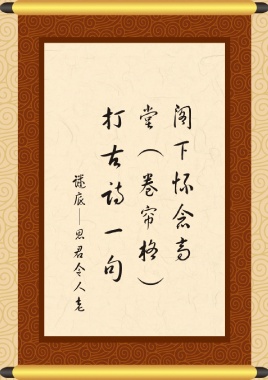 阁下怀念高
堂（卷帘格）
打古诗一句
谜底—思君令人老